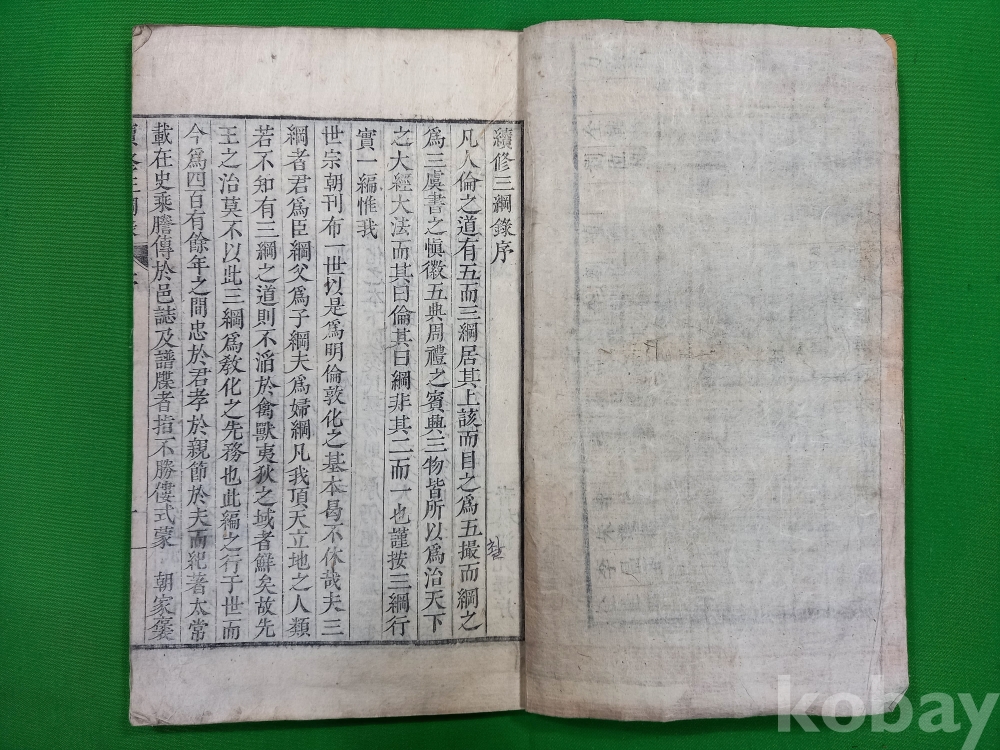 續修三綱錄序
凡人倫之道有五而三綱居其上該而目之爲五撮而綱之
爲三虞書之愼徽五典周禮之賓興三物皆所以爲治天下
之大經大法而其曰倫其曰綱非其二而一也謹按三綱行
實一編惟我
世宗朝刊布一世以是爲明倫敦化之基本曷不休哉夫三
綱者君爲臣綱父爲子綱夫爲婦綱凡我頂天立地之人類
若不知有三綱之道則不滔於禽獸夷狄之域者鮮矣故先
王之治莫不以此三綱爲敎化之先務也此編之行于世而
今爲四百有餘年之間忠於君孝於親節於夫而紀著太常
載在史乘謄傳於邑誌及譜牒者指不勝僂式蒙 朝家褒
kobay